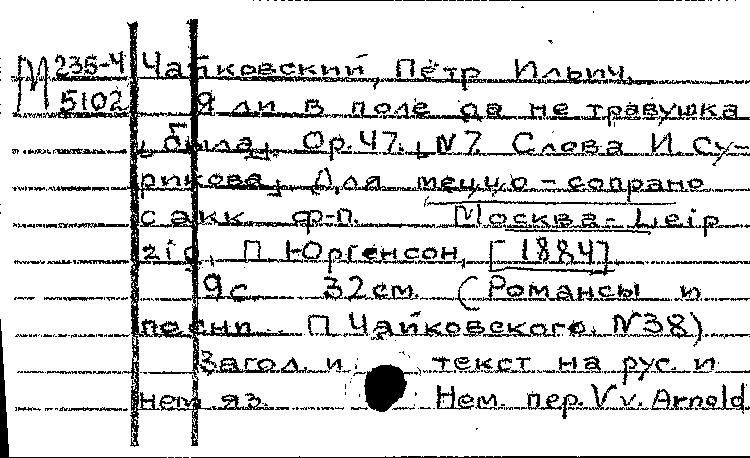 М 235-4 Чайковский, Пётр Ильич.
5102 Я ли в поле да не травушка
[была]. Op.47. [N7 Слова И. Су-
рикова]. Для меццо-сопрано
с акк. ф-п. Москва-Leip
zig, П. Юргенсон, [1884].
9с. 32см. (Романсы и
песни... П. Чайковского. N38)
Загол. и текст на рус. и
нем. яз. Нем. пер. V v. Arnold